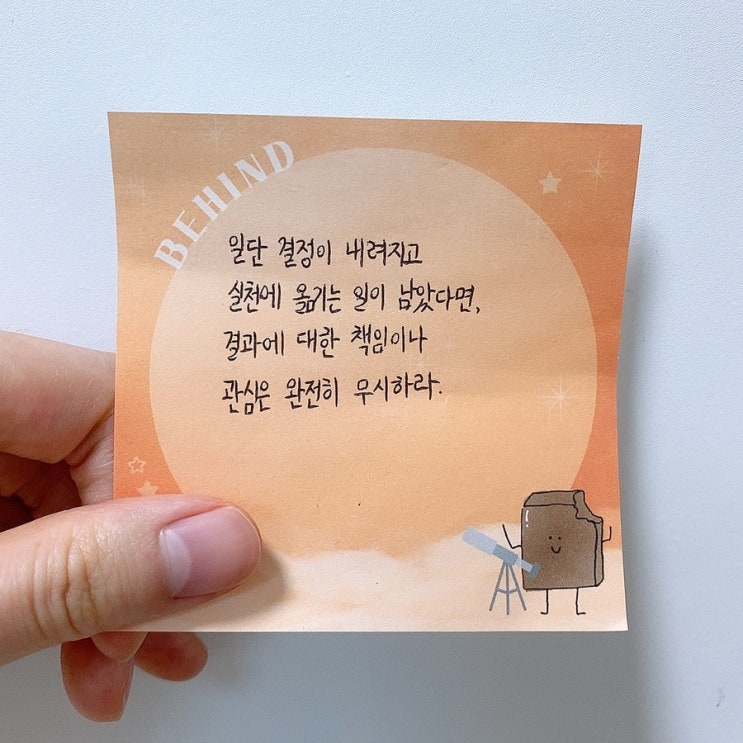 BEHIND
일단 결정이 내려지고
실천에 옮기는 일이 남았다면,
결과에 대한 책임이나
관심은 완전히 무시하라.